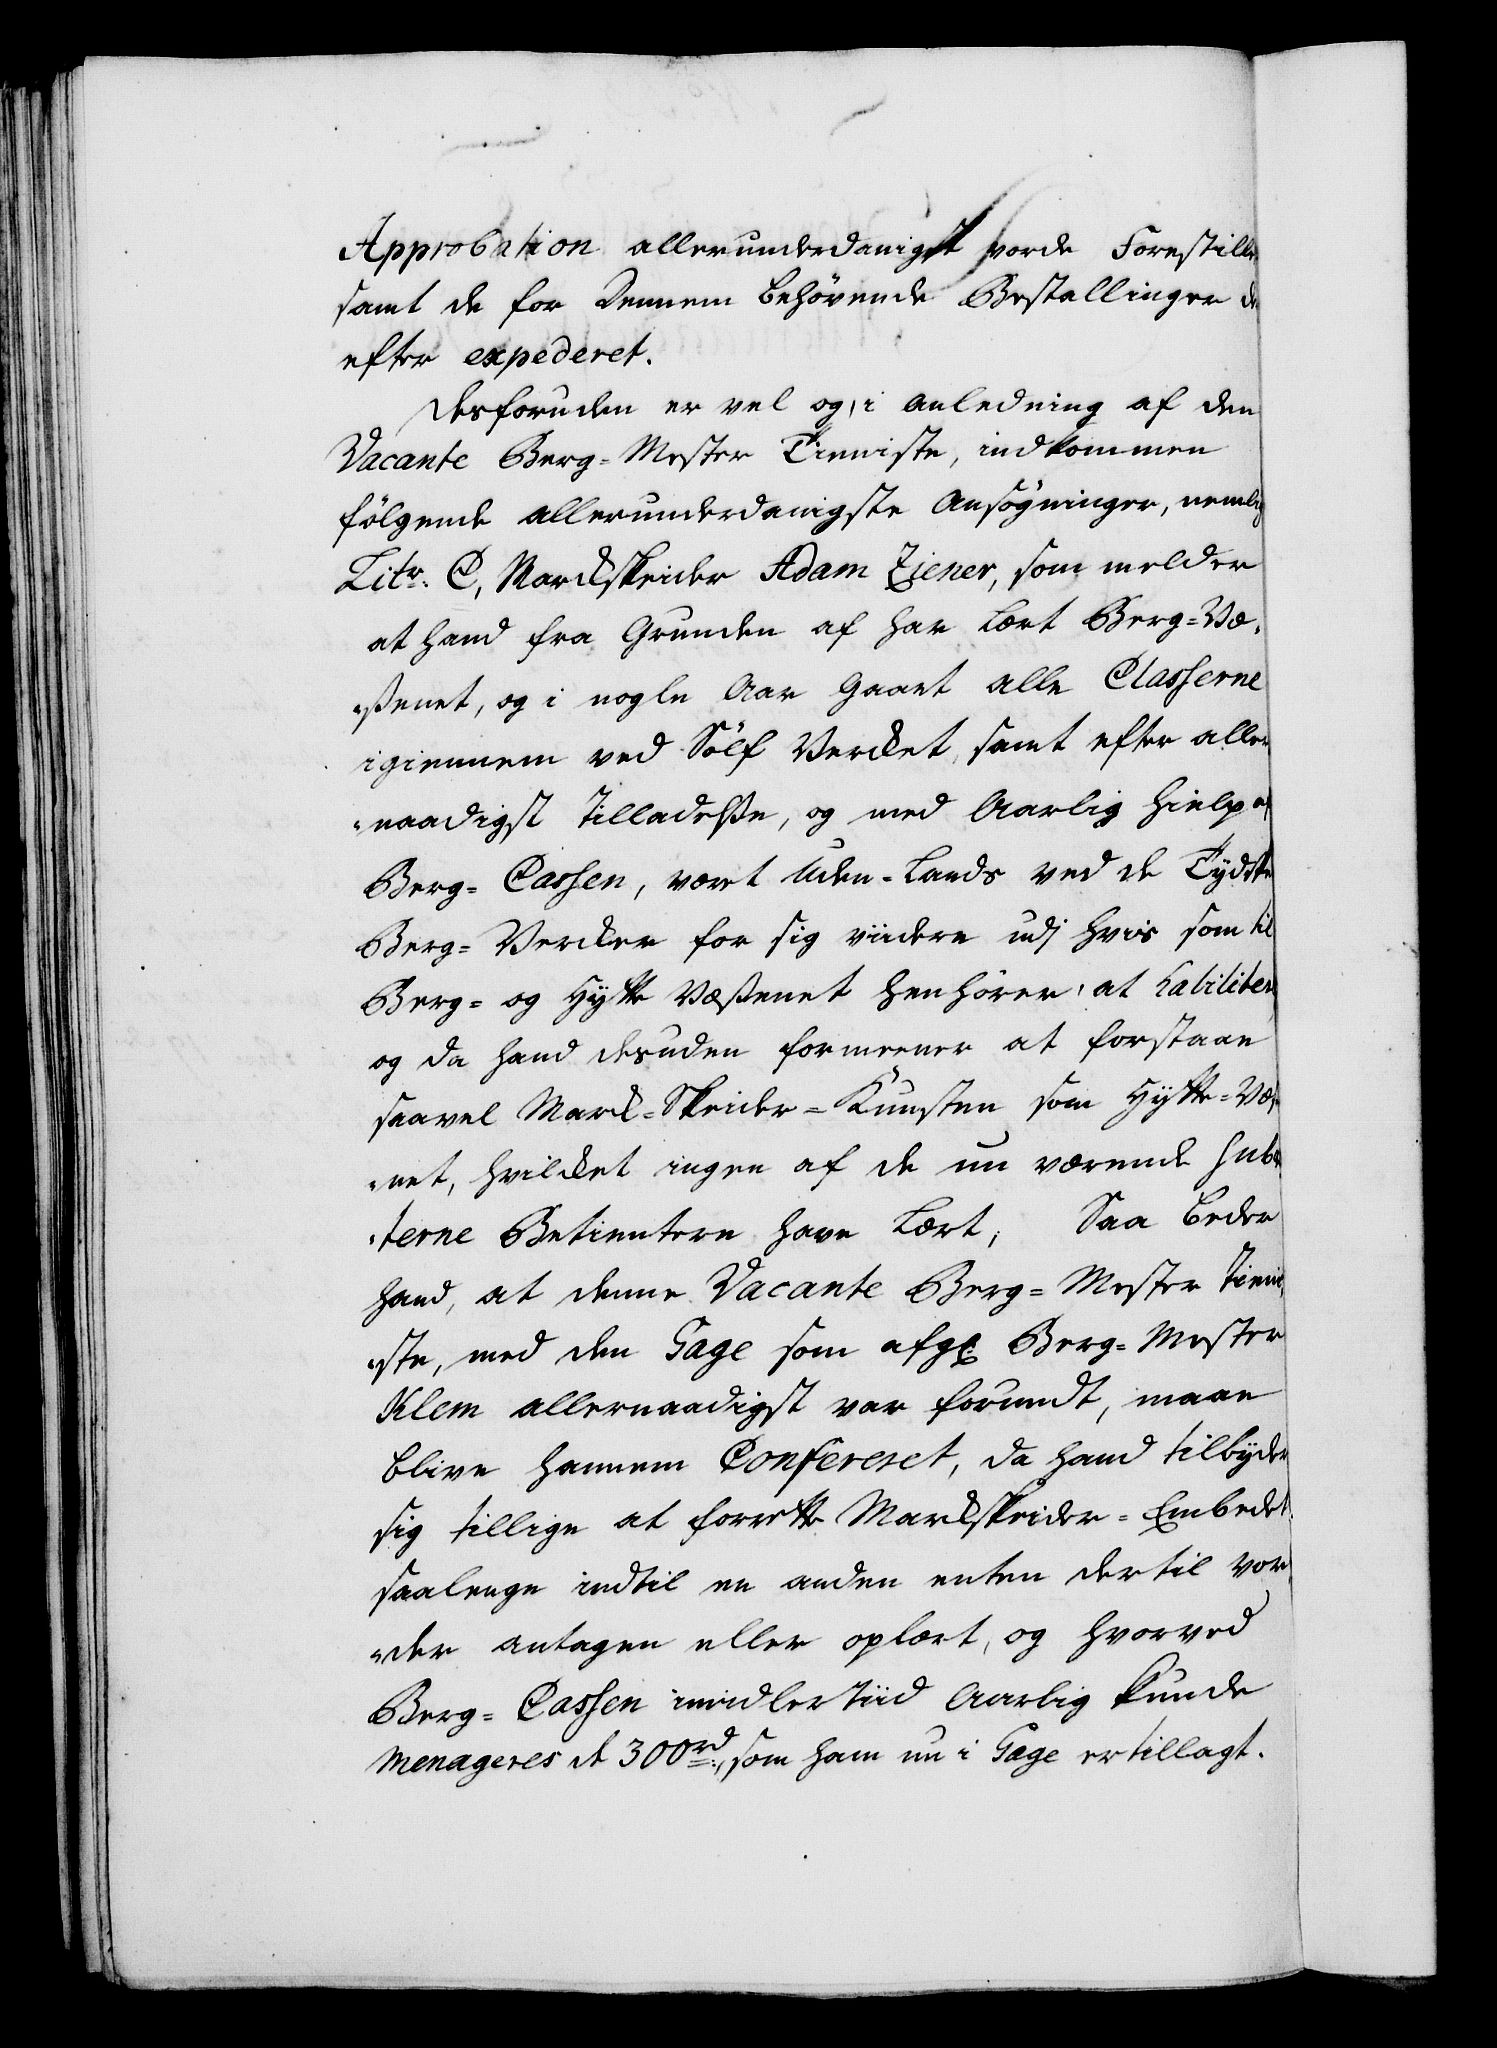 Approbation allerunderdanigst vorde Forestille
samt de for dennem behövende Bestallinger de
efter expederet.
desforuden er vel og, i anledning af den
Vacante Berg-Mester Tieniste, indkommen
følgende allerunderdanigste Ansøgninger, nemlig
Litr. C, Markskeider Adam Ziener, som melder
at hand fra Grunden af har lært Berg-Væ-
ßenet, og i nogle Aar gaaet alle Classerne
igiennem ved Sölf Verket, samt efter aller
naadigst Tilladelße, og med Aarlig Hielp af
Berg-Cassen, været Uden-Lands ved de Tydske
Berg-Vercker for sig viidere udj hvis som til
Berg- og Hytte Væßenet henhörer, at habiliter
og da hand desuden formeener at forstaae
saavel Mark-Skeider-Kunsten som Hytte-Væs
net, hvilcket ingen af de nu værende Suba
terne Betientere have lært, Saa beder
hand, at denne Vacante Berg-Mester Tieni
ste, med den Gage som afg: Berg-Mester
Klem allernaadigst var forundt, maae
blive hannem Confereret, da hand tilbyder
sig tillige at forrette Markskeider-Embedet
saalenge indtil en anden enten dertil vor
der antagen eller oplært, og hvorved
Berg-Cassen imidlertiid Aarlig kunde
menageres de 300 rd, som ham nu i Gage er tillagt.